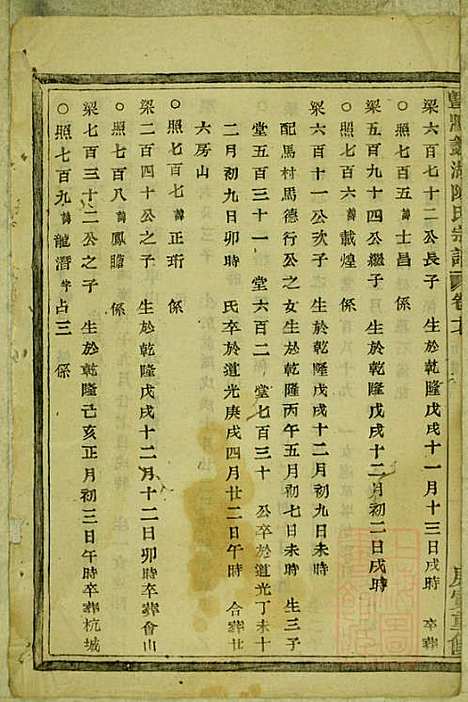 暨陽 湖陳氏宗譜 卷
梁六百七十二公長子 生於乾隆戊戌十一月十三日戌時 卒葬
○照七百五諱士昌 係
梁五百九十四公繼子 生於乾隆戊戌十二月初二日戌時
○照七百六諱載煌 係
梁六百十一公次子 生於乾隆戊戌十二月初九日未時
配馬村馬德行公之女 生於乾隆丙午五月初七日未時 生三子
堂五百三十一 堂六百二 堂七百三十 公卒於道光丁未十
二月初九日卯時 氏卒於道光庚戌四月廿二日午時 合葬廿
六房山
○照七百七諱正珩 係
梁二百四十公之子 生於乾隆戊戌十二月十二日卯時卒葬會山
○照七百八諱鳳瞻 係
梁七百三十二公之子 生於乾隆己亥正月初三日午時卒葬杭城
○照七百九諱龍潛字占三 係